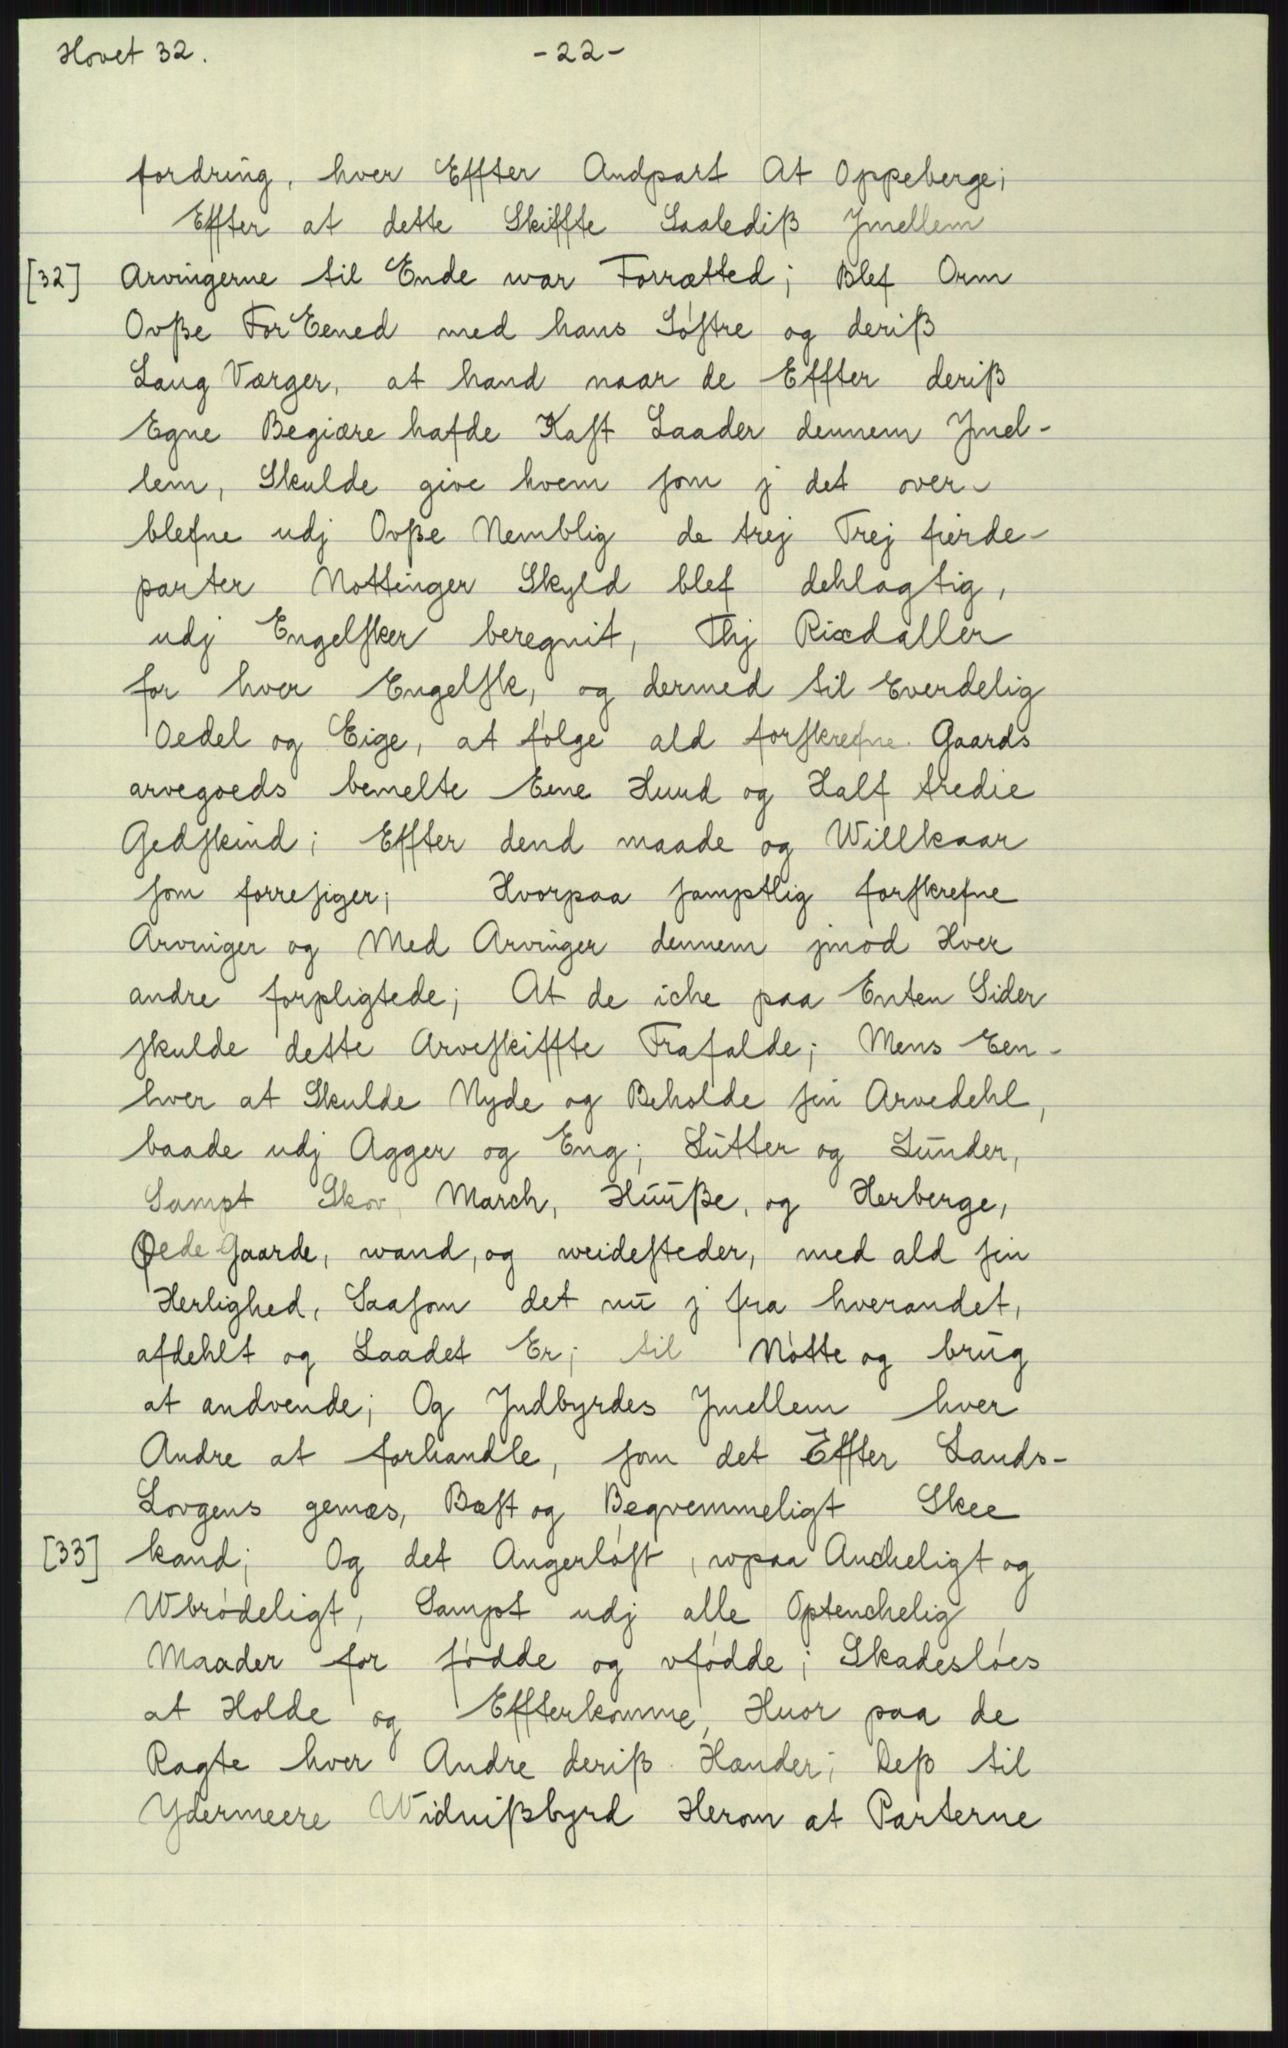 Hovet 32. -22-
fordring, hver Effter Andpart At Oppeberge;
Effter at dette Skiffte Saalediß Jmellem
[32] Arvingerne til Ende war Forrætted; Blef Orm
Ovße ForEened med hans Søstre og deriß
Laug Værger, at hand naar de Effter deriß
Egne Begiære hafde Kast Laader dennem Jmel-
lem, Skulde give hvem som j det over-
blefne udj Ovße Nemblig de trej Trej fierde-
parter Nottinger Skyld blef dehlagtig,
udj Engelsker beregnit, Thj Rixdaller
for hver Engelsk, og dermed til Everdelig
Oedel og Eige, at følge ald forskrefne Gaards
arvegoeds bemelte Eene Huud og Half tredie
Gedskind; Effter dend maade og Willkaar
som forresiger; Hvorpaa samptlig forskrefne
Arvinger og Med Arvinger dennem jmod Hver
andre forpligtede; At de iche paa Enten Sider
skulde dette Arveskiffte Frafalde; Mens Een-
hver at Skulde Nyde og Beholde sin Arvedehl,
baade udj Agger og Eng; Lutter og Lunder,
Sampt Skov, March, Huuße, og Herberge,
Øede Gaarde, wand, og weidesteder, med ald sin
Herlighed, Saasom det nu j fra hverandet,
afdehlt og Laadet Er; til Nøtte og brug
at andvende; Og Jndbyrdes Jmellem hver
Andre at forhandle, som det Effter Lands-
Lovgens gemæs, Bæst og Beqvemmeligt Skee
[33] kand; Og det Angerløst, wpaa Ancheligt og
Wbrødeligt, Sampt udj alle Optenchelig
Maader for fødde og vfødde; Skadesløes
at Holde og Effterkomme, Huor paa de
Ragte hver Andre deriß Hænder; Deß til
Ydermeere Widnißbyrd Herom at Parterne